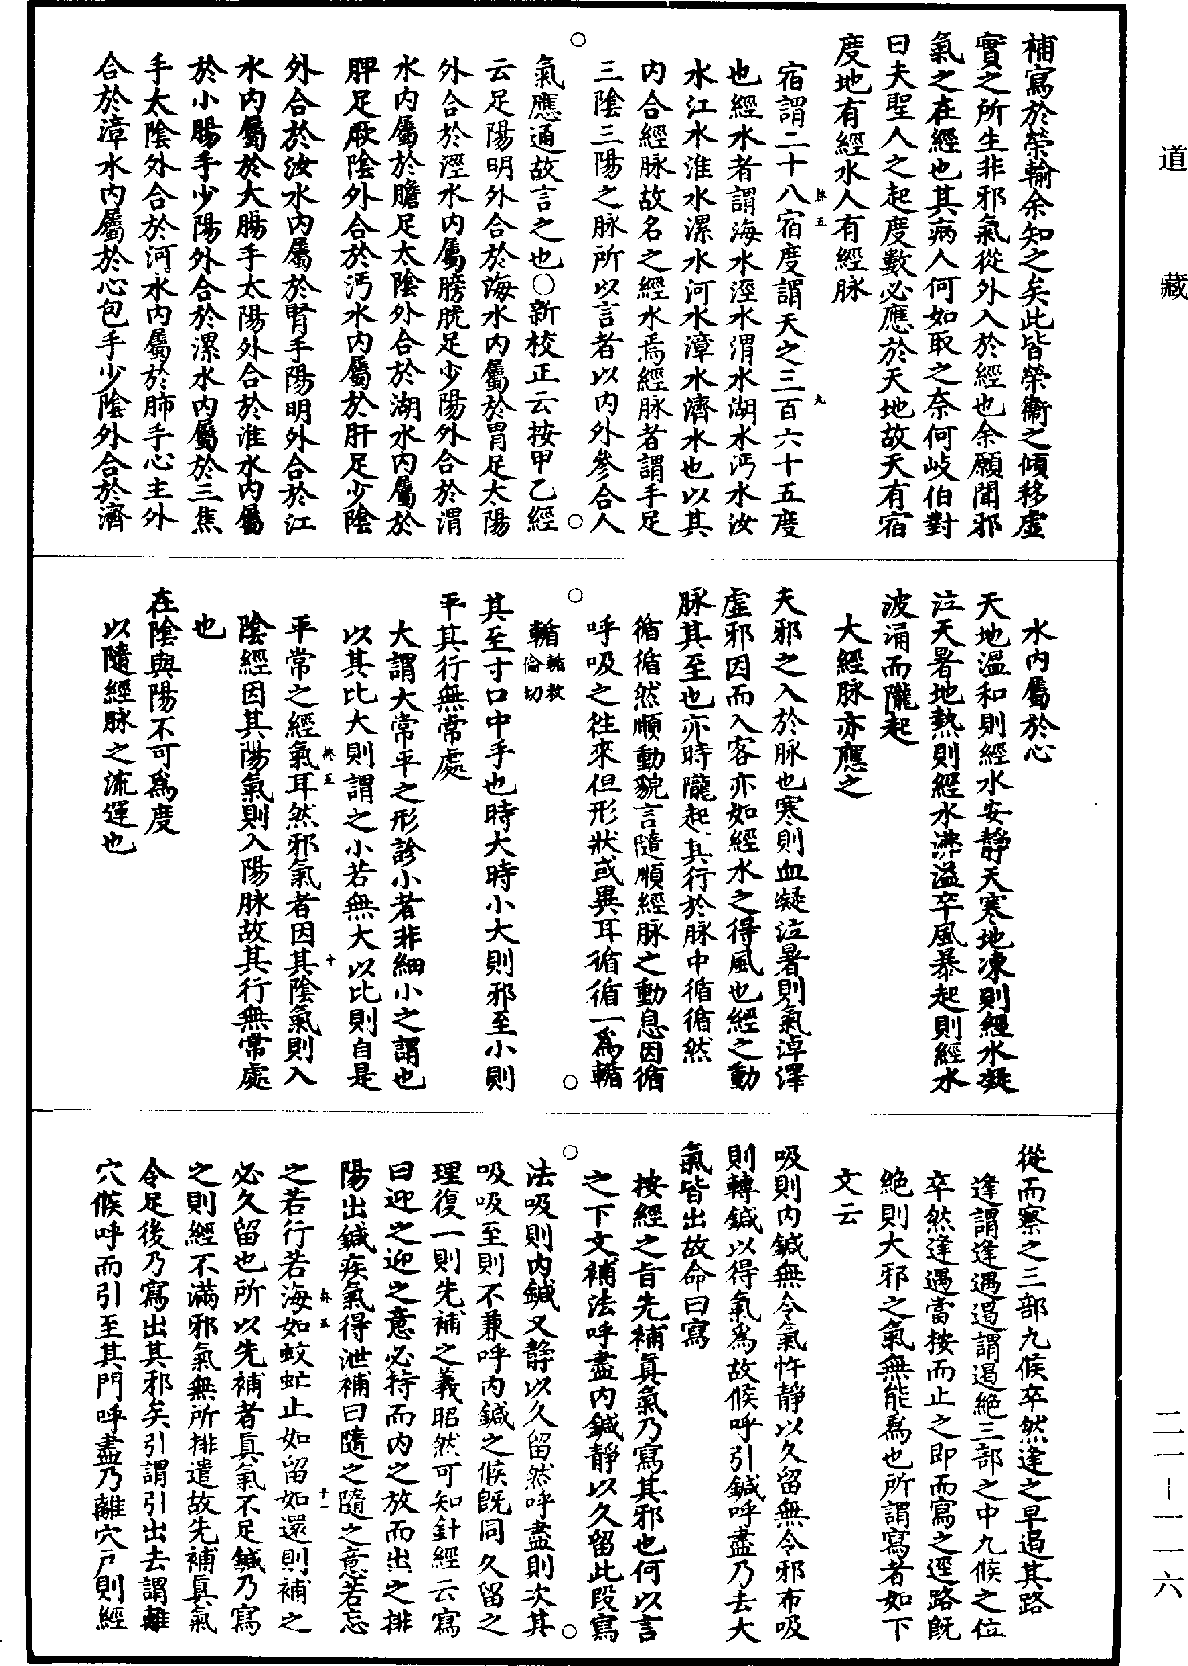 補寫於榮輸余知之矣此皆榮衞之傾移虛
實之所生非邪氣從外入於經也余願聞邪
氣之在經也其病人何如取之柰何岐伯對
曰夫聖人之起度數必應於天地故天有宿
度地有經水人有經脉
宿謂二十八宿度謂天之三百六十五度
也經水者謂海水涇水渭水湖水沔水汝
水江水淮水漯水河水漳水濟水也以其
內合經脉故名之經水焉經脉者謂手足
三陰三陽之脉所以言者以內外參合人
氣應通故言之也○新校正云按甲乙經
云足陽明外合於海水內屬於胃足太陽
外合於涇水內屬膀胱足少陽外合於渭
水內屬於膽足太陰外合於湖水內屬於
脾足厥陰外合於沔水內屬於肝足少陰
外合於汝水內屬於腎手陽明外合於江
水內屬於大腸手太陽外合於淮水內屬
於小腸手少陽外合於漯水內屬於三焦
手太陰外合於河水內屬於肺手心主外
合於漳水內屬於心包手少陰外合於濟
水內屬於心
天地溫和則經水安靜天寒地凍則經水凝
泣天暑地熱則經水沸溢卒風暴起則經水
波涌而隴起
大經脉亦應之
夫邪之入於脉也寒則血凝泣暑則氣淖澤
虛邪因而入客亦如經水之得風也經之動
脉其至也亦時隴起其行於脉中循循然
循循然順動貌言隨順經脉之動息因循
呼吸之往來但形狀或異耳循循一爲輴
輴輴敕倫切
其至寸口中手也時大時小大則邪至小則
平其行無常處
大謂大常平之形診小者非細小之謂也
以其比大則謂之小若無大以比則自是
平常之經氣耳然邪氣者因其陰氣則入
陰經因其陽氣則入陽脉故其行無常處
也
在陰與陽不可爲度
以隨經脉之流運也
從而察之三部九候卒然逢之早遏其路
逢謂逢遇遏謂遏絕三部之中九候之位
卒然逢遇當按而止之即而寫之逕路旣
絕則大邪之氣無能爲也所謂寫者如下
文云
吸則內鍼無令氣忤靜以久留無令邪布吸
則轉鍼以得氣爲故候呼引鍼呼盡乃去大
氣皆出故命曰寫
按經之旨先補眞氣乃寫其邪也何以言
之下文補法呼盡內鍼靜以久留此段寫
法吸則內鍼又靜以久留然呼盡則次其
吸吸至則不兼呼內鍼之候旣同久留之
理復一則先補之義昭然可知針經云寫
曰迎之迎之意必持而內之放而出之排
陽出鍼疾氣得泄補曰隨之隨之意若忘
之若行若海如蚊虻止如留如還則補之
必久留也所以先補者眞氣不足鍼乃寫
之則經不滿邪氣無所排遣故先補眞氣
令足後乃寫出其邪矣引謂引出去謂離
穴候呼而引至其門呼盡乃離穴戶則經
道藏
二一－一一六